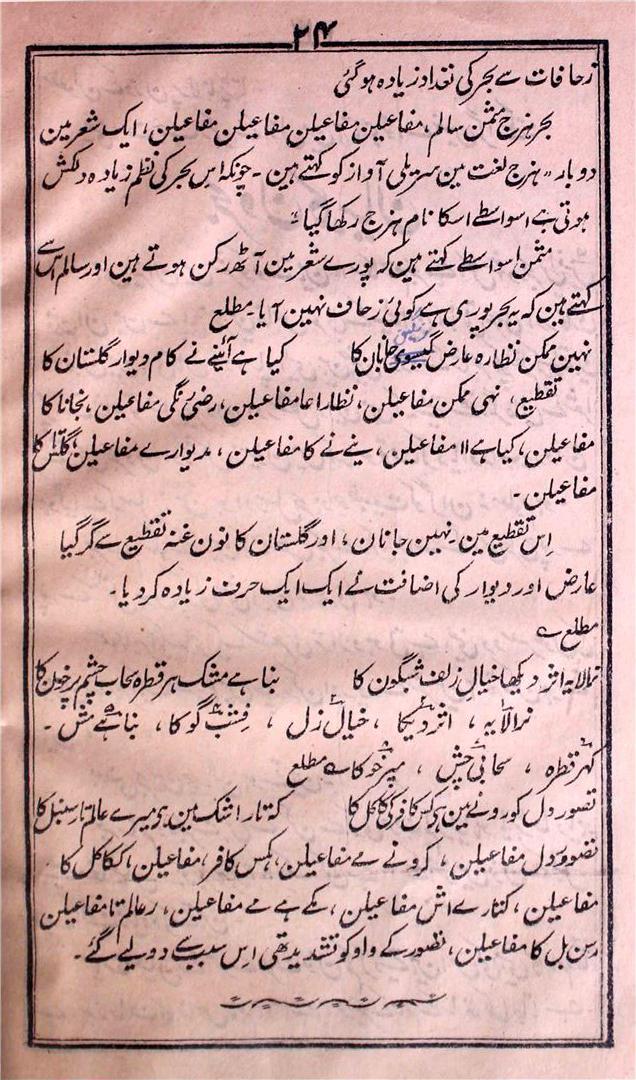 ۲۴
زحافات سے بحر کی تعداد زیادہ ہو گئی
بحر ہزج مثمن سالم، مفاعیلن مفاعیلن مفاعیلن مفاعیلن، ایک شعر مین
دوبار، ہزج لغت مین سریلی آواز کو کہتے ہین۔ چونکہ اس بحر کی نظم زیادہ دلکش
ہوتی ہے اسواسطے اسکا نام ہزج رکھا گیا،
مثمن اسواسطے کہتے ہین کہ پورے شعر مین آٹھ رکن ہوتے ہین اور سالم اسے
کہتے ہین کہ یہ بحر پوری ہے کوئی زحاف نہین آیا۔ مطلع
نہین ممکن نظارہ عارض جانان کا کیا ہے آئینے نے کام دیوار گلستان کا
تقطیع، نہی ممکن مفاعیلن، نظارا عا مفاعیلن، رضی مفاعیلن، جانا کا
مفاعیلن، کیا ہے اا مفاعیلن، ینے نے کا مفاعیلن، مدیوارے مفاعیلن، گلستا کا
مفاعیلن۔
اس تقطیع مین۔ نہین جانان، اور گلستان کا نون غنہ تقطیع سے گر گیا
عارض اور دیوار کی اضافت نے ایک ایک حرف زیادہ کر دیا۔
مطلع
نرالا یہ اثر دیکھا خیال زلف شبگون کا بنا ہے مشک ہر قطرہ سحاب چشم پر خون کا
نرالا یہ، اثر دیکا، خیالے زل، فشب گو کا، بنا ہے مش۔
کہر قطرہ، سحابی چش، مپر خو کا مطلع
تصور دل کو رونے مین ہی کس کافر کی کاکل کا کہ تار اشک مین ہی میرے عالم تار سنبل کا
تصوور دل مفاعیلن، کرونے مے مفاعیلن، ہکس کافر، مفاعیلن، ککا کل کا
مفاعیلن، کتارے اش مفاعیلن، کمے ہے مے مفاعیلن، رعالم تا مفاعیلن
رسن بل کا مفاعیلن، تصور کے واو کو تشدید تھی اس سبب سے دو لیے گئے۔